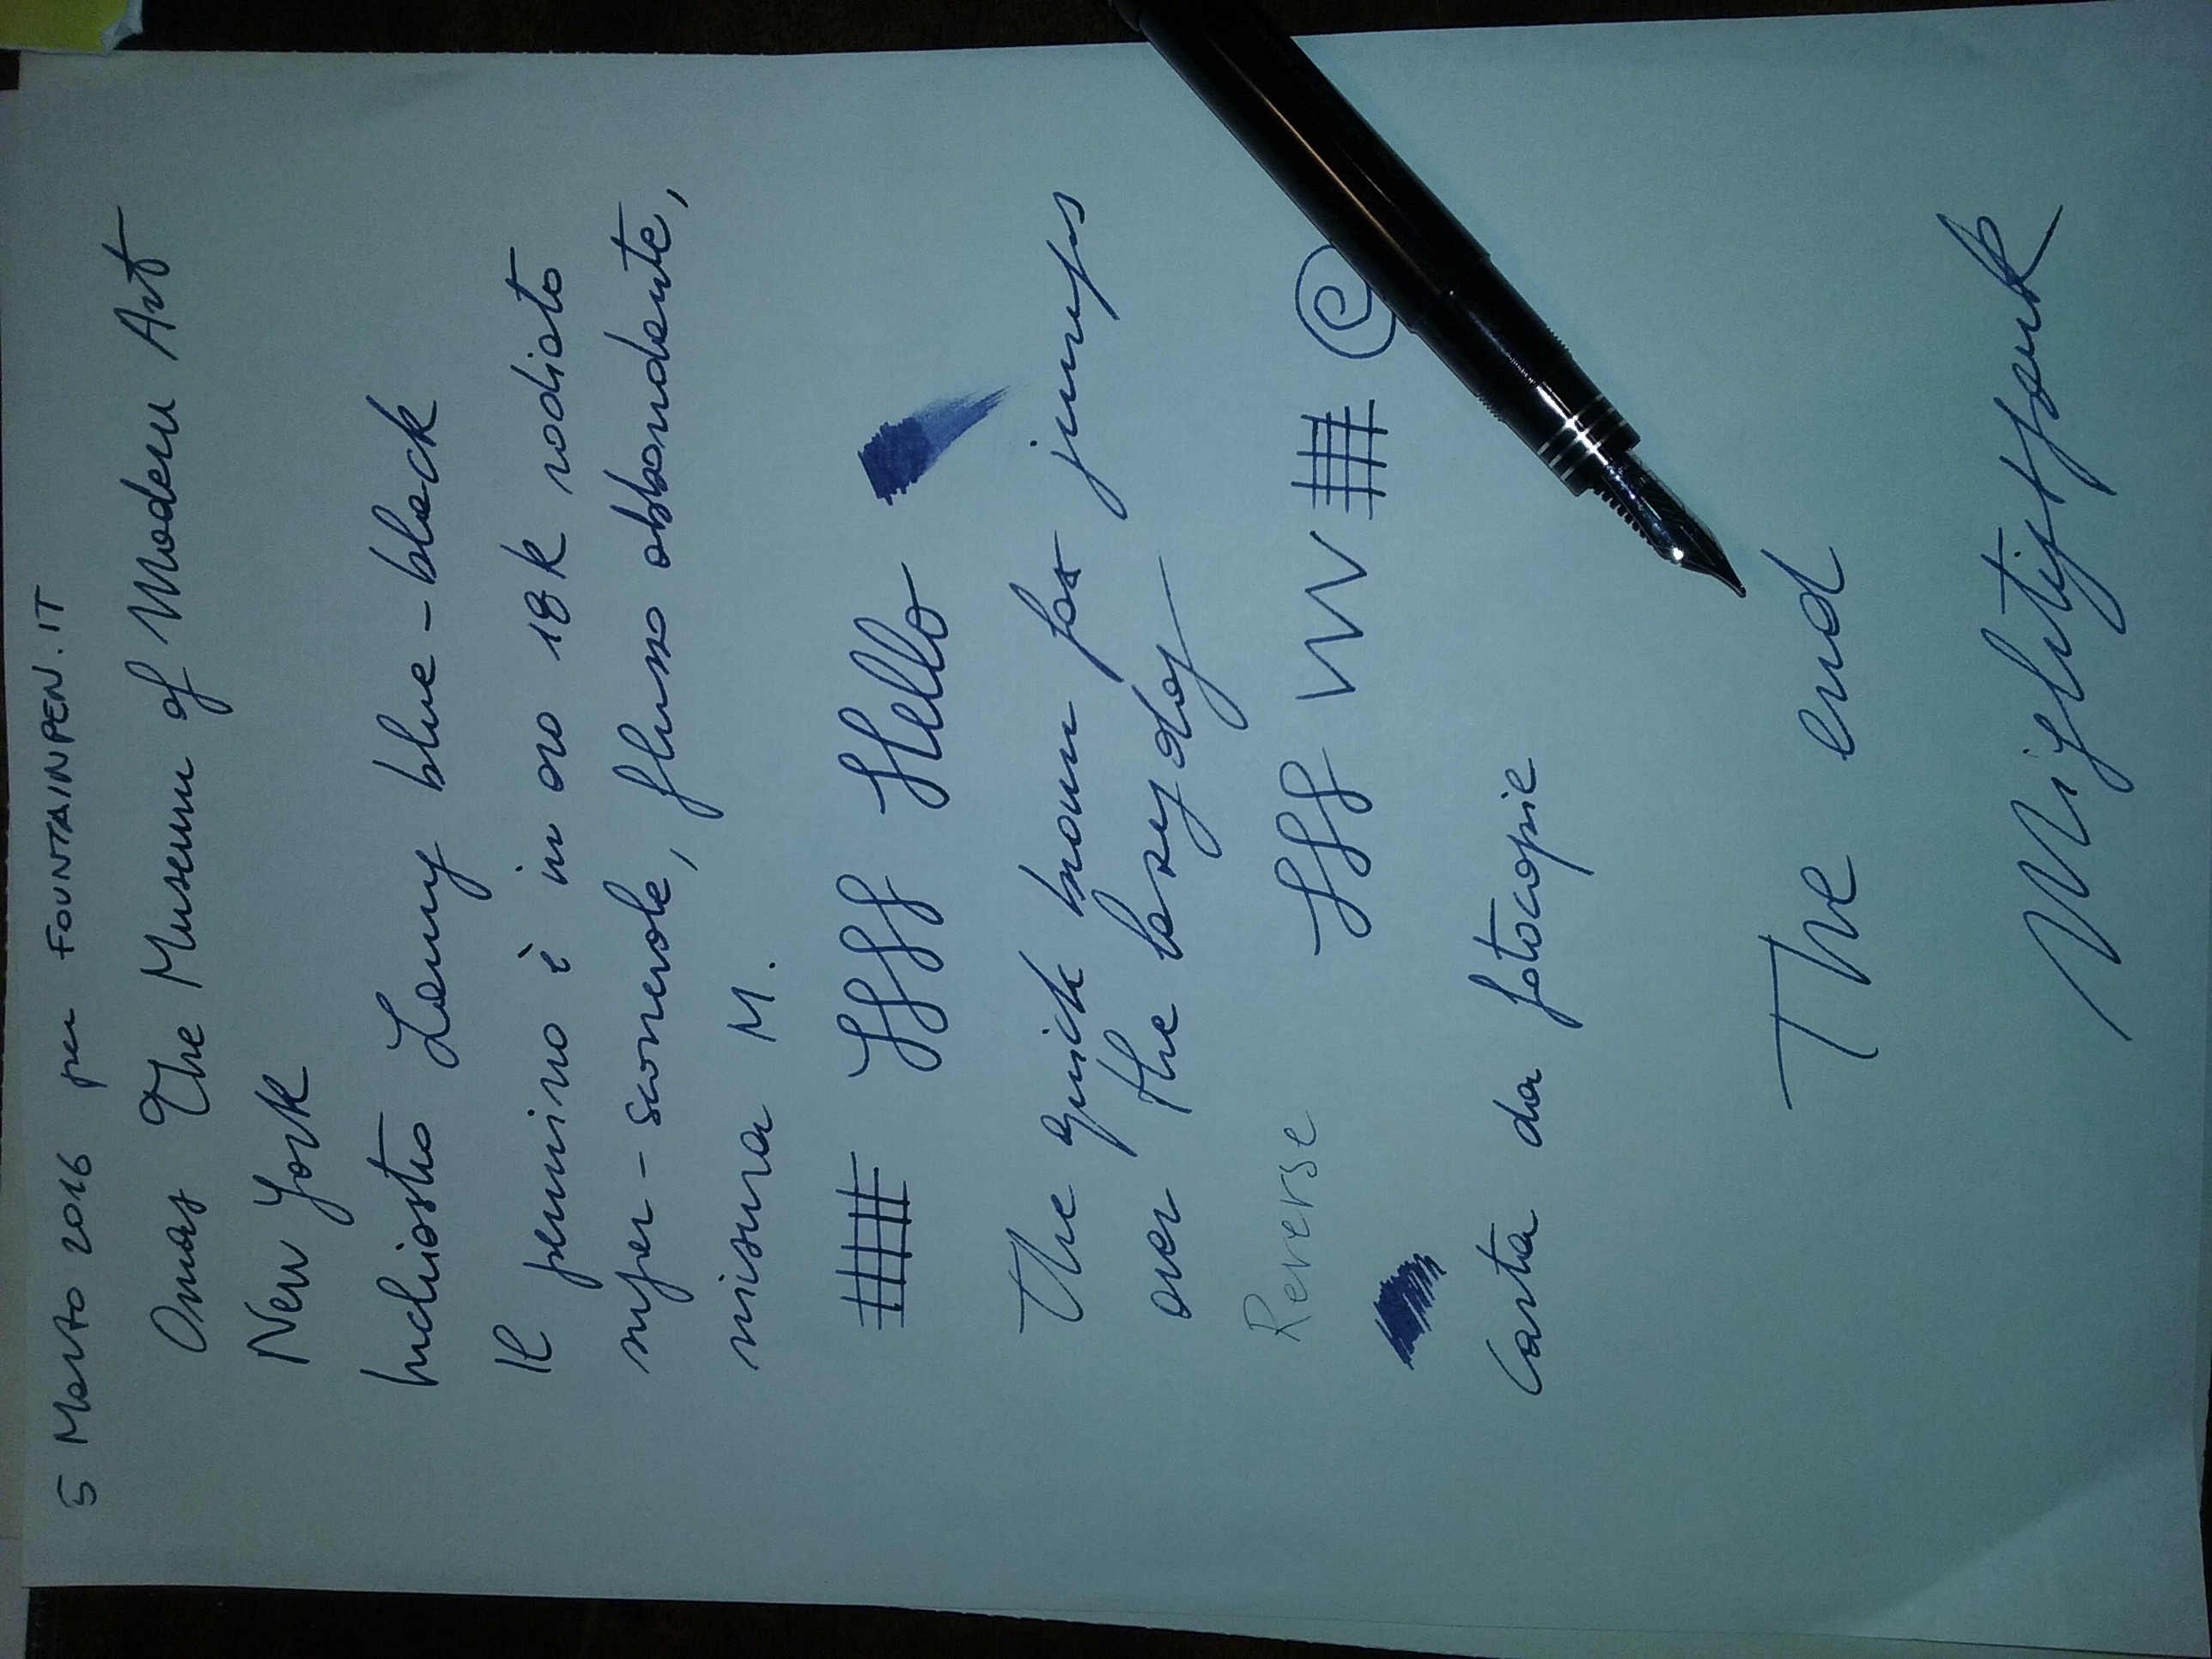 5 Marzo 2016 per FOUNTAINPEN.IT
Omas The Museum of Modern Art
New York
Inchiostro Lamy blue-black
Il pennino è in oro 18K rodiato
super-scorrevole, flusso abbondante,
misura M.
Hello
The quick brown fox jumps
over the lazy dog
Reverse
Carta da fotocopie
The end